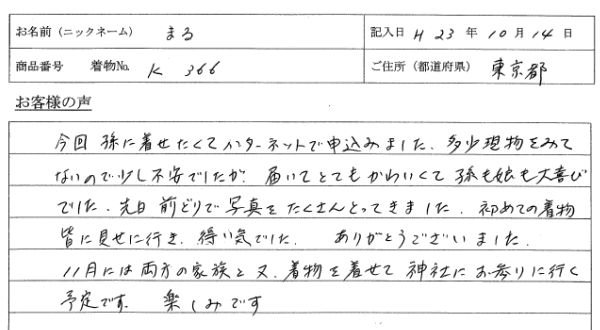 お名前（ニックネーム） まる 記入日 H 23 年 10 月 14 日
商品番号 着物No. K 366 ご住所（都道府県） 東京都
お客様の声
今回 孫に着せたくてインターネットで申込みました。多少現物をみて
ないので少し不安でしたが、届いてとてもかわいくて孫も娘も大喜び
でした。先日 前どりで写真をたくさんとってきました。初めての着物
皆に見せに行き、得い気でした。 ありがとうございました。
11月には両方の家族と又、着物を着せて神社にお参りに行く
予定です。 楽しみです